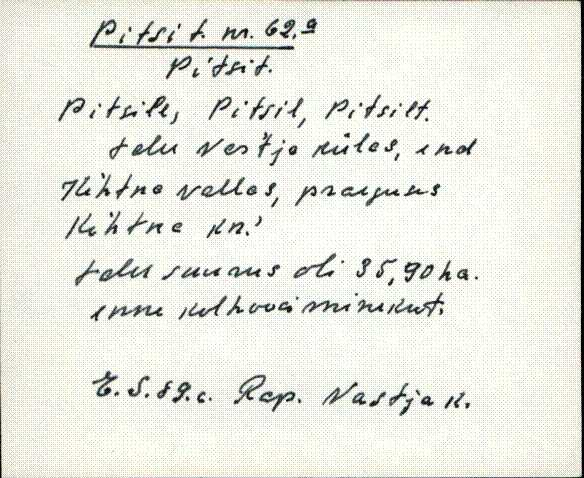 Pitsi t. nr. 62.a
Pitsit.
Pitsile, Pitsil, Pitsilt.
talu Vastja külas, end
Kehtna vallas, praeguses
Kehtna kn.
talu suurus oli 35,90 ha.
enne kolhoosi minekut.
E.S.89.a. Rap. Vastja k.